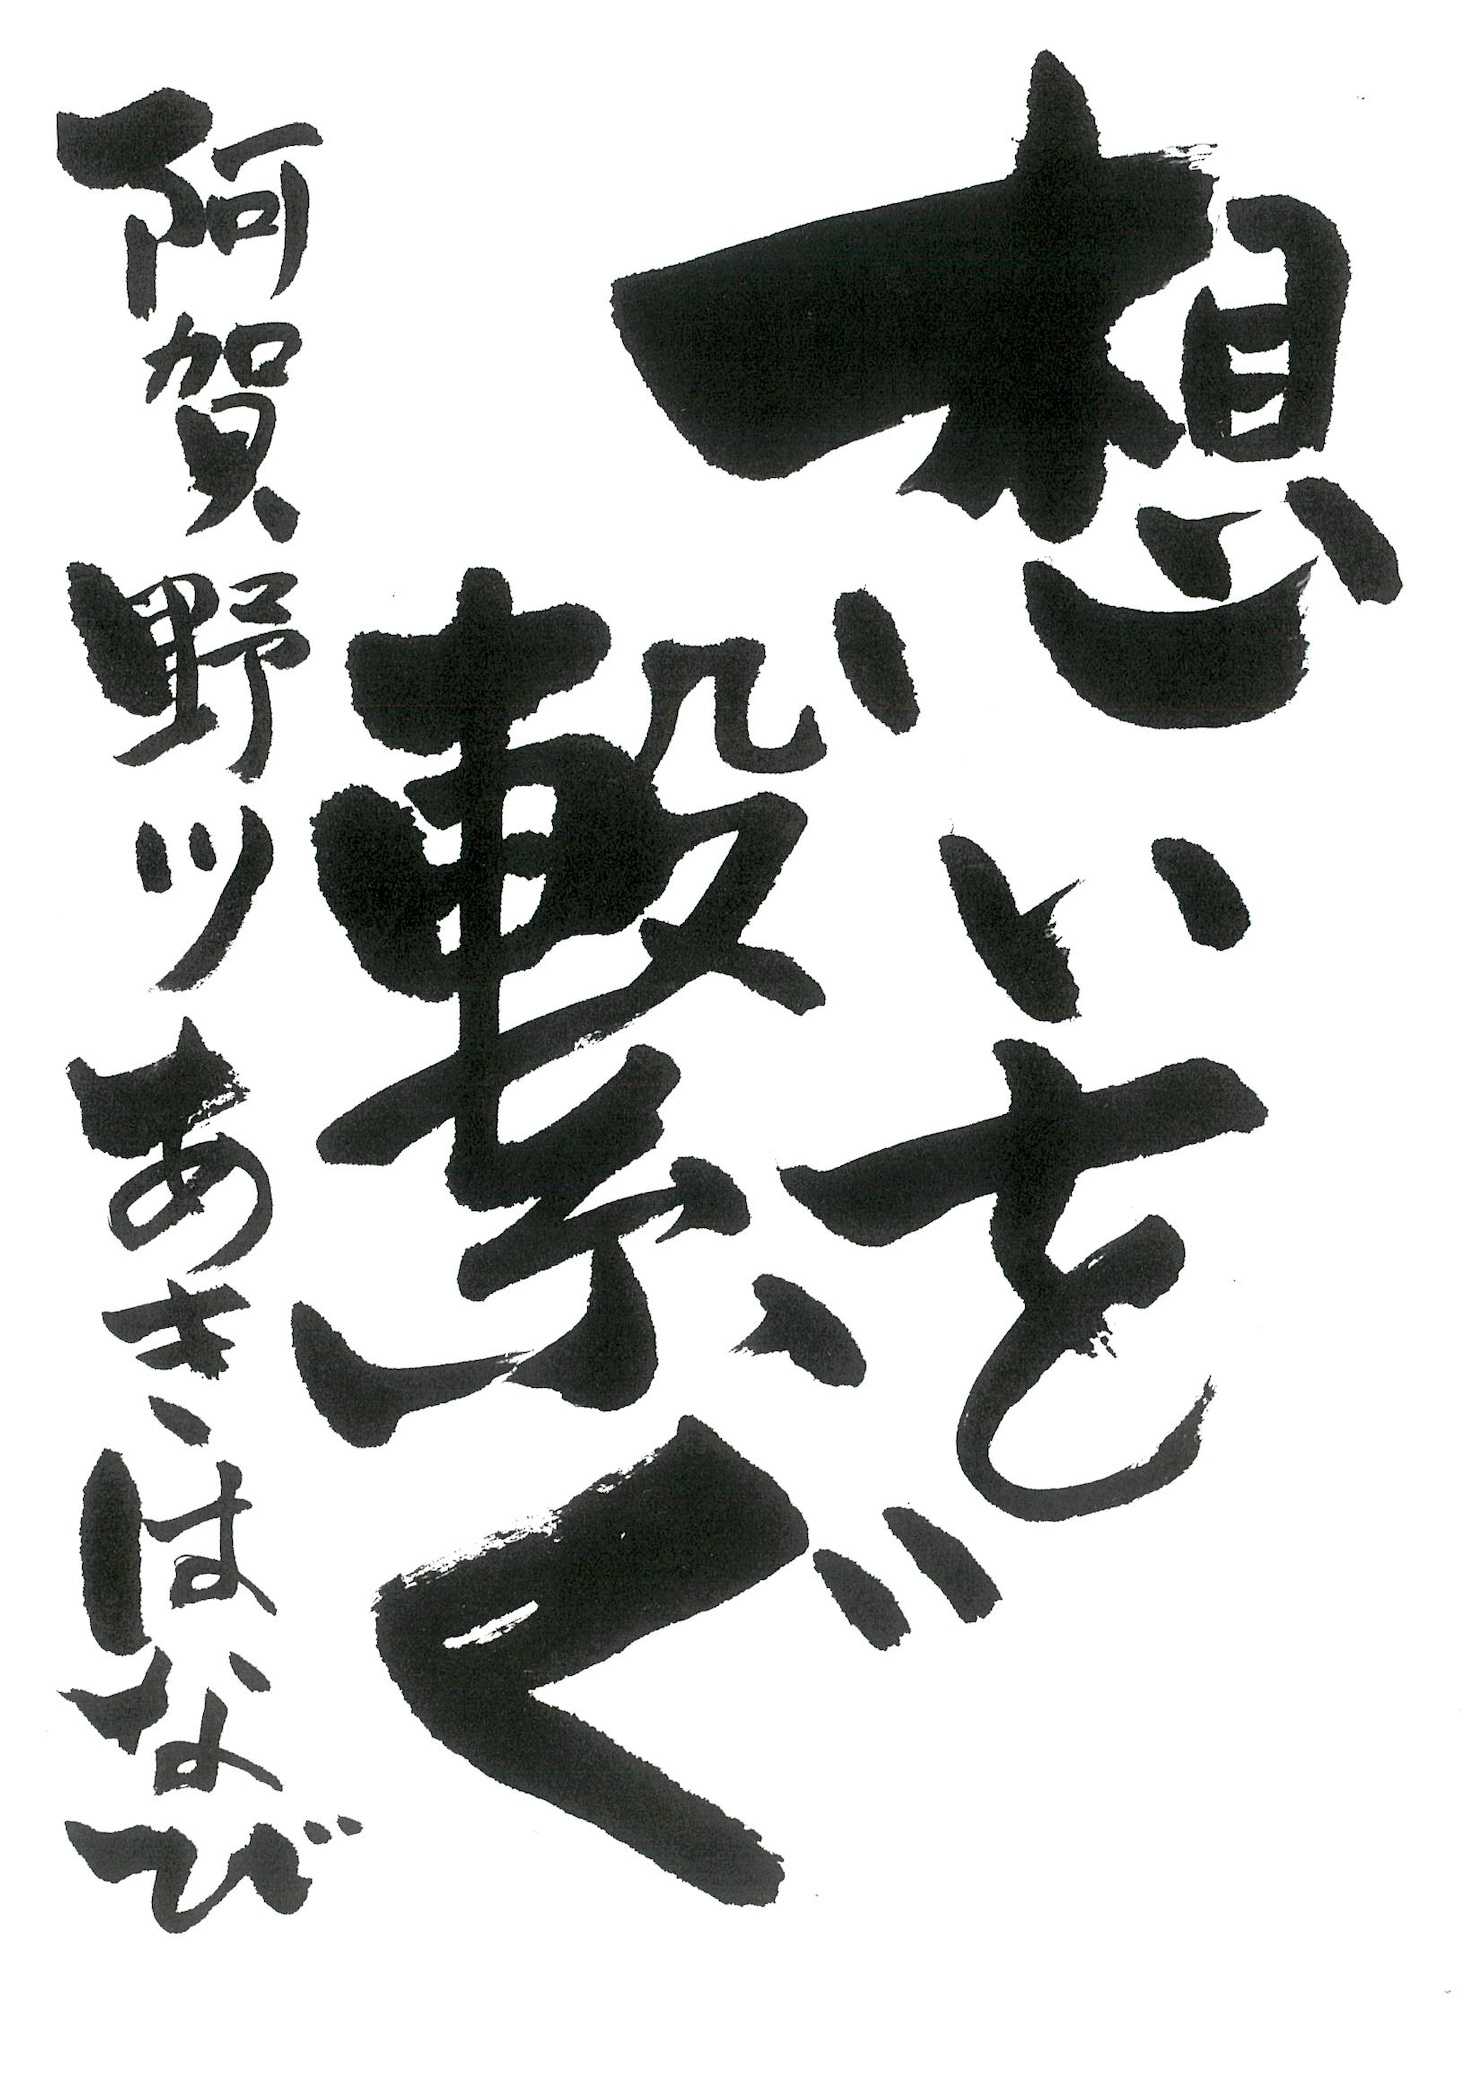 想いを
繋ぐ
阿賀野川あきはなび